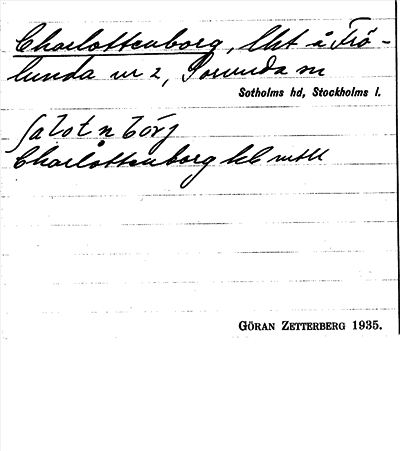 Charlottenborg, lht å Frö-
lunda nr 2, Sorunda sn
Sotholms hd, Stockholms l.
ʃaḷotnbörj
Charlottenborg hb mtll
GÖRAN ZETTERBERG 1935.